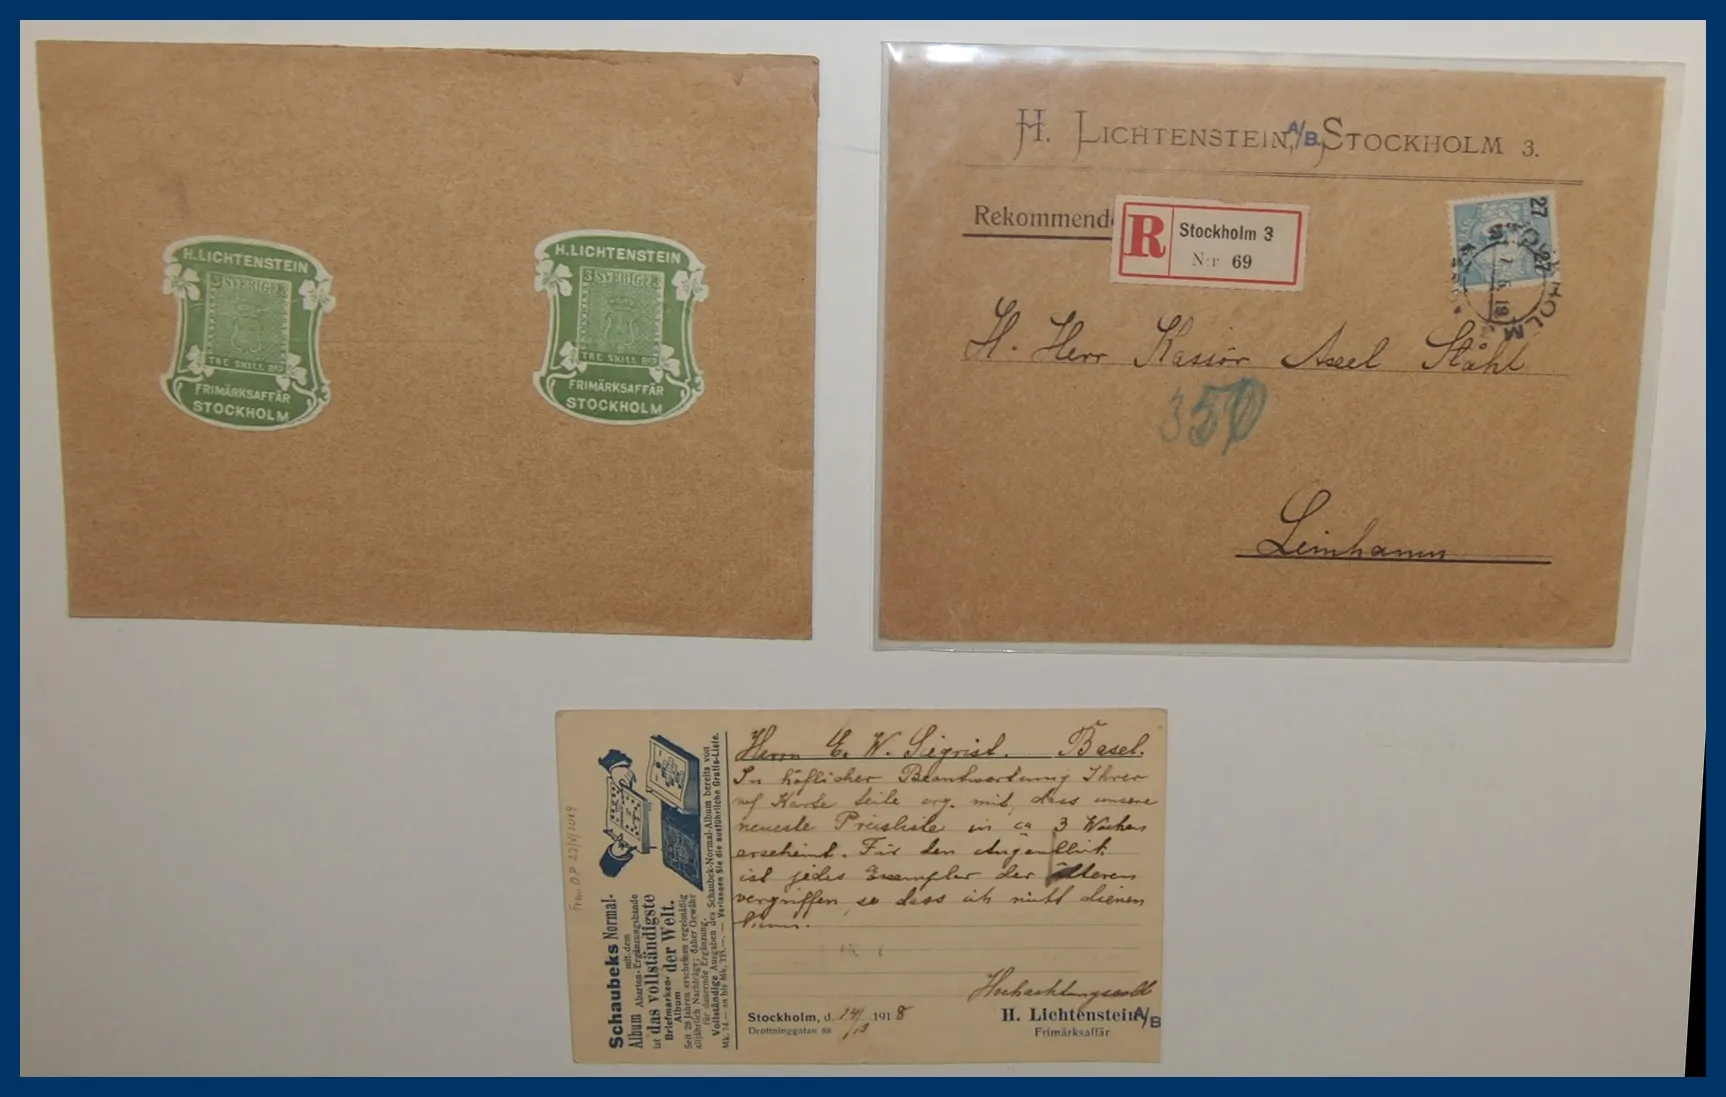 H. LICHTENSTEIN
3 SVERIGE 3
TRE SKILL Bco
FRIMÄRKSAFFÄR
STOCKHOLM
H. LICHTENSTEIN
3 SVERIGE 3
TRE SKILL Bco
FRIMÄRKSAFFÄR
STOCKHOLM
H. LICHTENSTEIN, A/B. STOCKHOLM 3.
Rekommende
R Stockholm 3
N:r 69
27
27
H. Herr Kassör Axel Ståhl
350
Limhamn
Schaubeks Normal-
Album mit dem
Abarten-Ergänzungsbande
ist das vollständigste
Briefmarken- der Welt.
Album
Seit 28 Jahren erscheinen regelmäßig
alljährlich Nachträge; daher Gewähr
für dauernde Ergänzung.
Vollständige Ausgaben des Schaubek-Normal-Album bereits von
Mk. 14.— an bis Mk. 135.—. — Verlangen Sie die ausführliche Gratis-Liste.
Herrn E. W. Siegrist. Basel.
In höflicher Beantwortung Ihrer
Karte teile erg. mit, dass unsere
neueste Preisliste in ca 3 Wochen
erscheint. Für den Augenblick
ist jedes Exemplar der älteren
vergriffen, so dass ich nicht dienen
kann.
Hochachtungsvoll
Stockholm, d. 14/ 1918
Drottninggatan 88
H. Lichtenstein A/B
Frimärksaffär